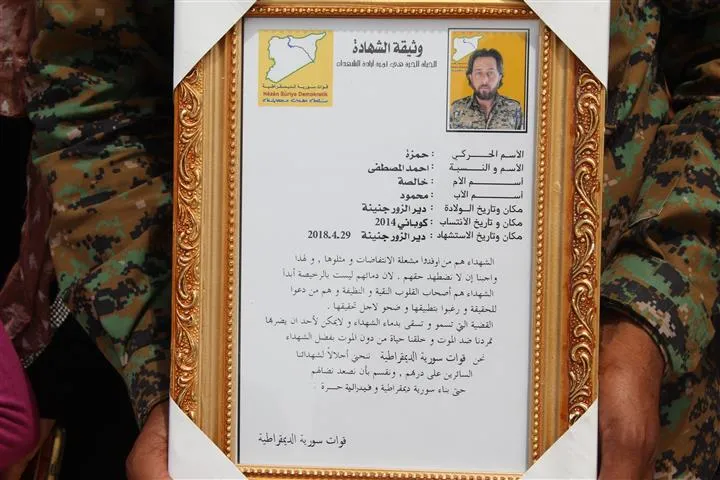 وثيقة الشهادة
الحياة الحرة هي ثورة لإرادة الشهداء
قوات سورية الديمقراطية
Hêzên Sûriya Demokratîk
الاسم الحركي : حمزة
الاسم و النسبة : احمد المصطفى
اسم الأم : خالصة
اسم الأب : محمود
مكان وتاريخ الولادة : دير الزور جنينة
مكان و تاريخ الانتساب : كوباني 2014
مكان وتاريخ الاستشهاد : دير الزور جنينة 2018.4.29
الشهداء هم من اوقدوا مشعلة الانتفاضات و مثلوها , و لهذا
واجبنا إن لا نضطهد حقهم , لان دمائهم ليست بالرخيصة أبداً
الشهداء هم أصحاب القلوب النقية و النظيفة و هم من دعوا
للحقيقة و رغبوا بتطبيقها و ضحو لاجل تحقيقها .
القضية التي تسمو و تسقى بدماء الشهداء و لايمكن لأحد ان يضرها
تمردنا ضد الموت و خلقنا حياة من دون الموت بفضل الشهداء
نحن قوات سورية الديمقراطية ننحني أجلالاً لشهدائنا
السائرين على دربهم , ونقسم بأن نصعد نضالهم
حتى بناء سورية ديمقراطية و فيدرالية حرة .
قوات سورية الديمقراطية